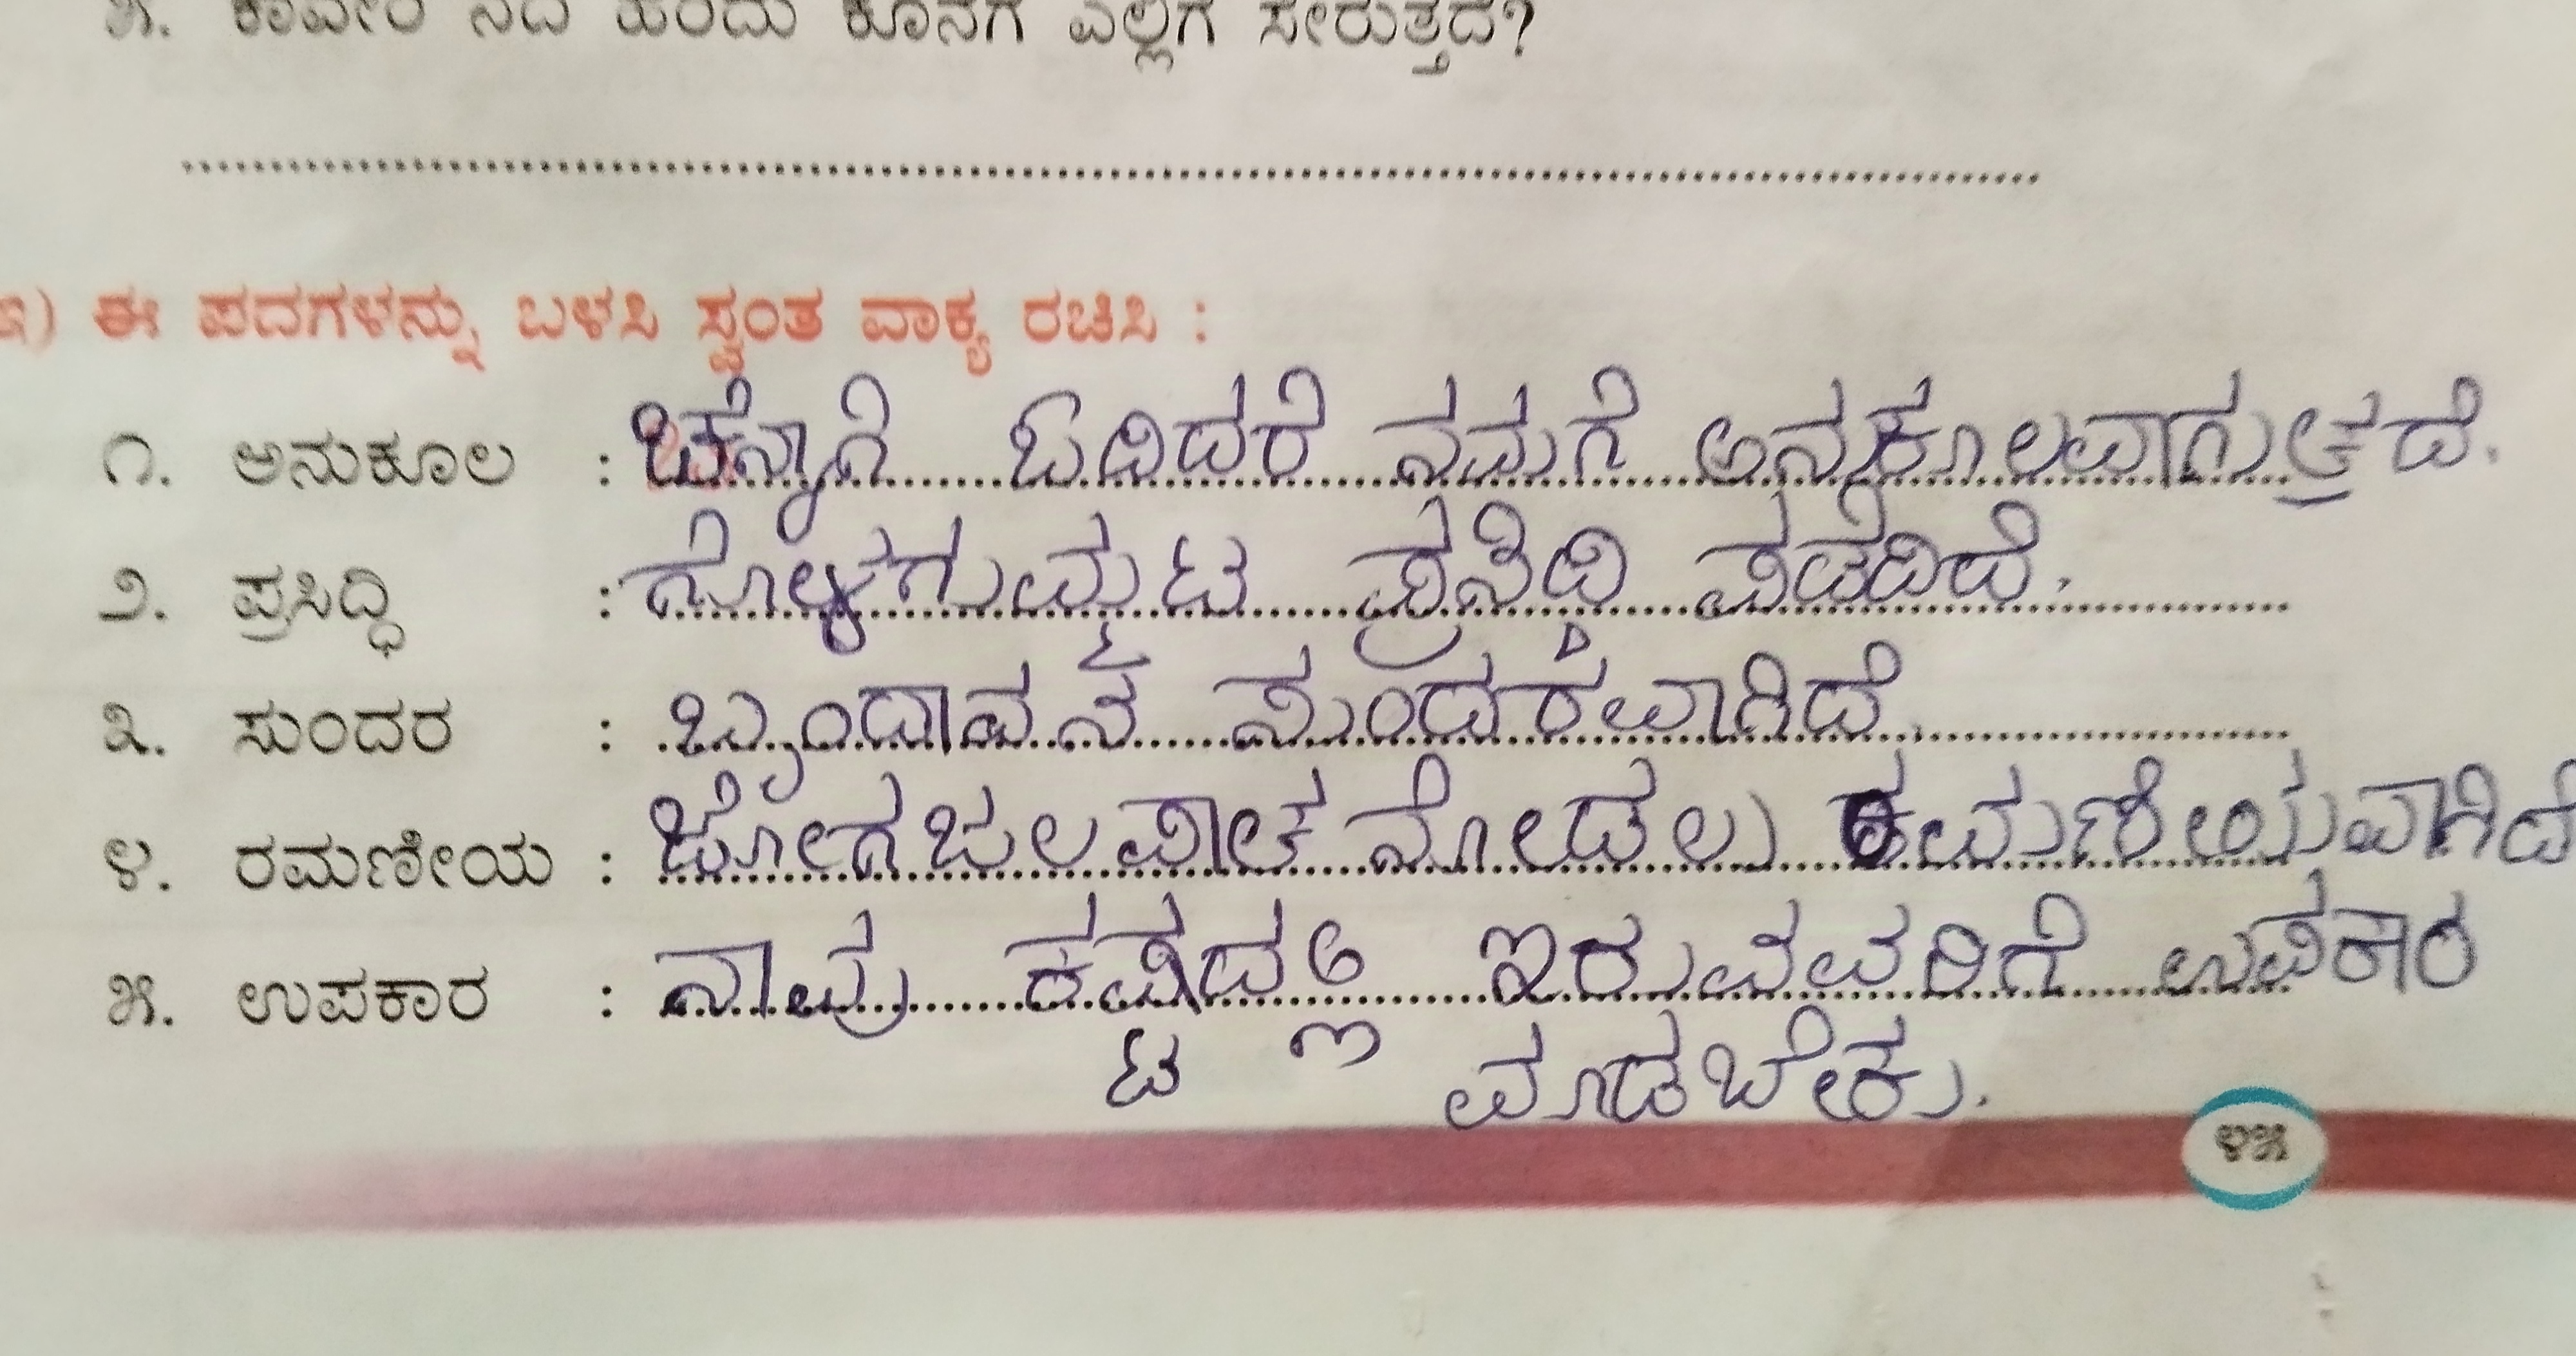 ೫. ಕಾವೇರಿ ನದಿ ಹರಿದು ಕೊನೆಗೆ ಎಲ್ಲಿಗೆ ಸೇರುತ್ತದೆ?
ಇ) ಈ ಪದಗಳನ್ನು ಬಳಸಿ ಸ್ವಂತ ವಾಕ್ಯ ರಚಿಸಿ :
೧. ಅನುಕೂಲ : ಚೆನ್ನಾಗಿ ಓದಿದರೆ ನಮಗೆ ಅನಕೂಲವಾಗುತ್ತದೆ.
೨. ಪ್ರಸಿದ್ಧಿ : ಗೊಳಗುಮ್ಮಟ ಪ್ರಸಿದ್ದಿ ಪಡೆದಿದೆ.
೩. ಸುಂದರ : ಬೃಂದಾವನ ಸುಂದರವಾಗಿದೆ.
೪. ರಮಣೀಯ : ಜೋಗಜಲಪಾತ ನೋಡಲು ರಮಣೀಯವಾಗಿದೆ
೫. ಉಪಕಾರ : ನಾವು ಕಷ್ಟದಲ್ಲಿ ಇರುವವರಿಗೆ ಉಪಕಾರ
ಮಾಡಬೇಕು.
೪೫